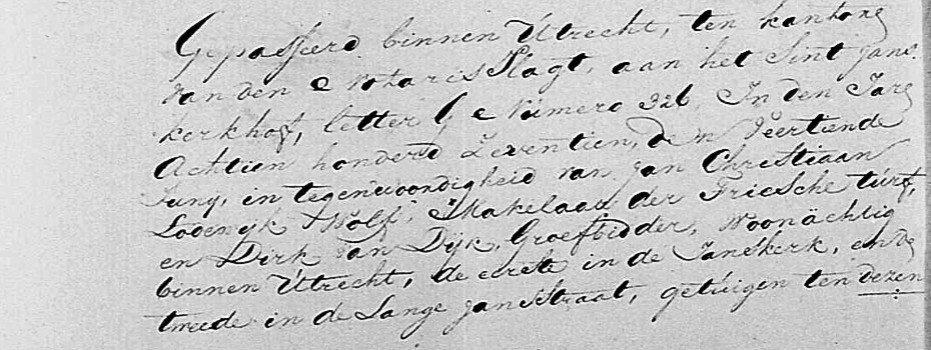 Gepasseerd binnen Utrecht, ten kantore
van den Notaris Slagt, aan het Sint Jans
kerkhof, letter G Numero 326, In den Jare
Achtien honderd Zeventien, den Veertiende
Juny, in tegenwoordigheid van Jan Christiaan
Lodewyk Wolf, Makelaar der Friesche turf,
en Dirk van Dijk, Groefbidder, woonächtig
binnen Utrecht, de eerste in de Janskerk, en de
tweede in de Lange Jansstraat, getuigen ten dezen